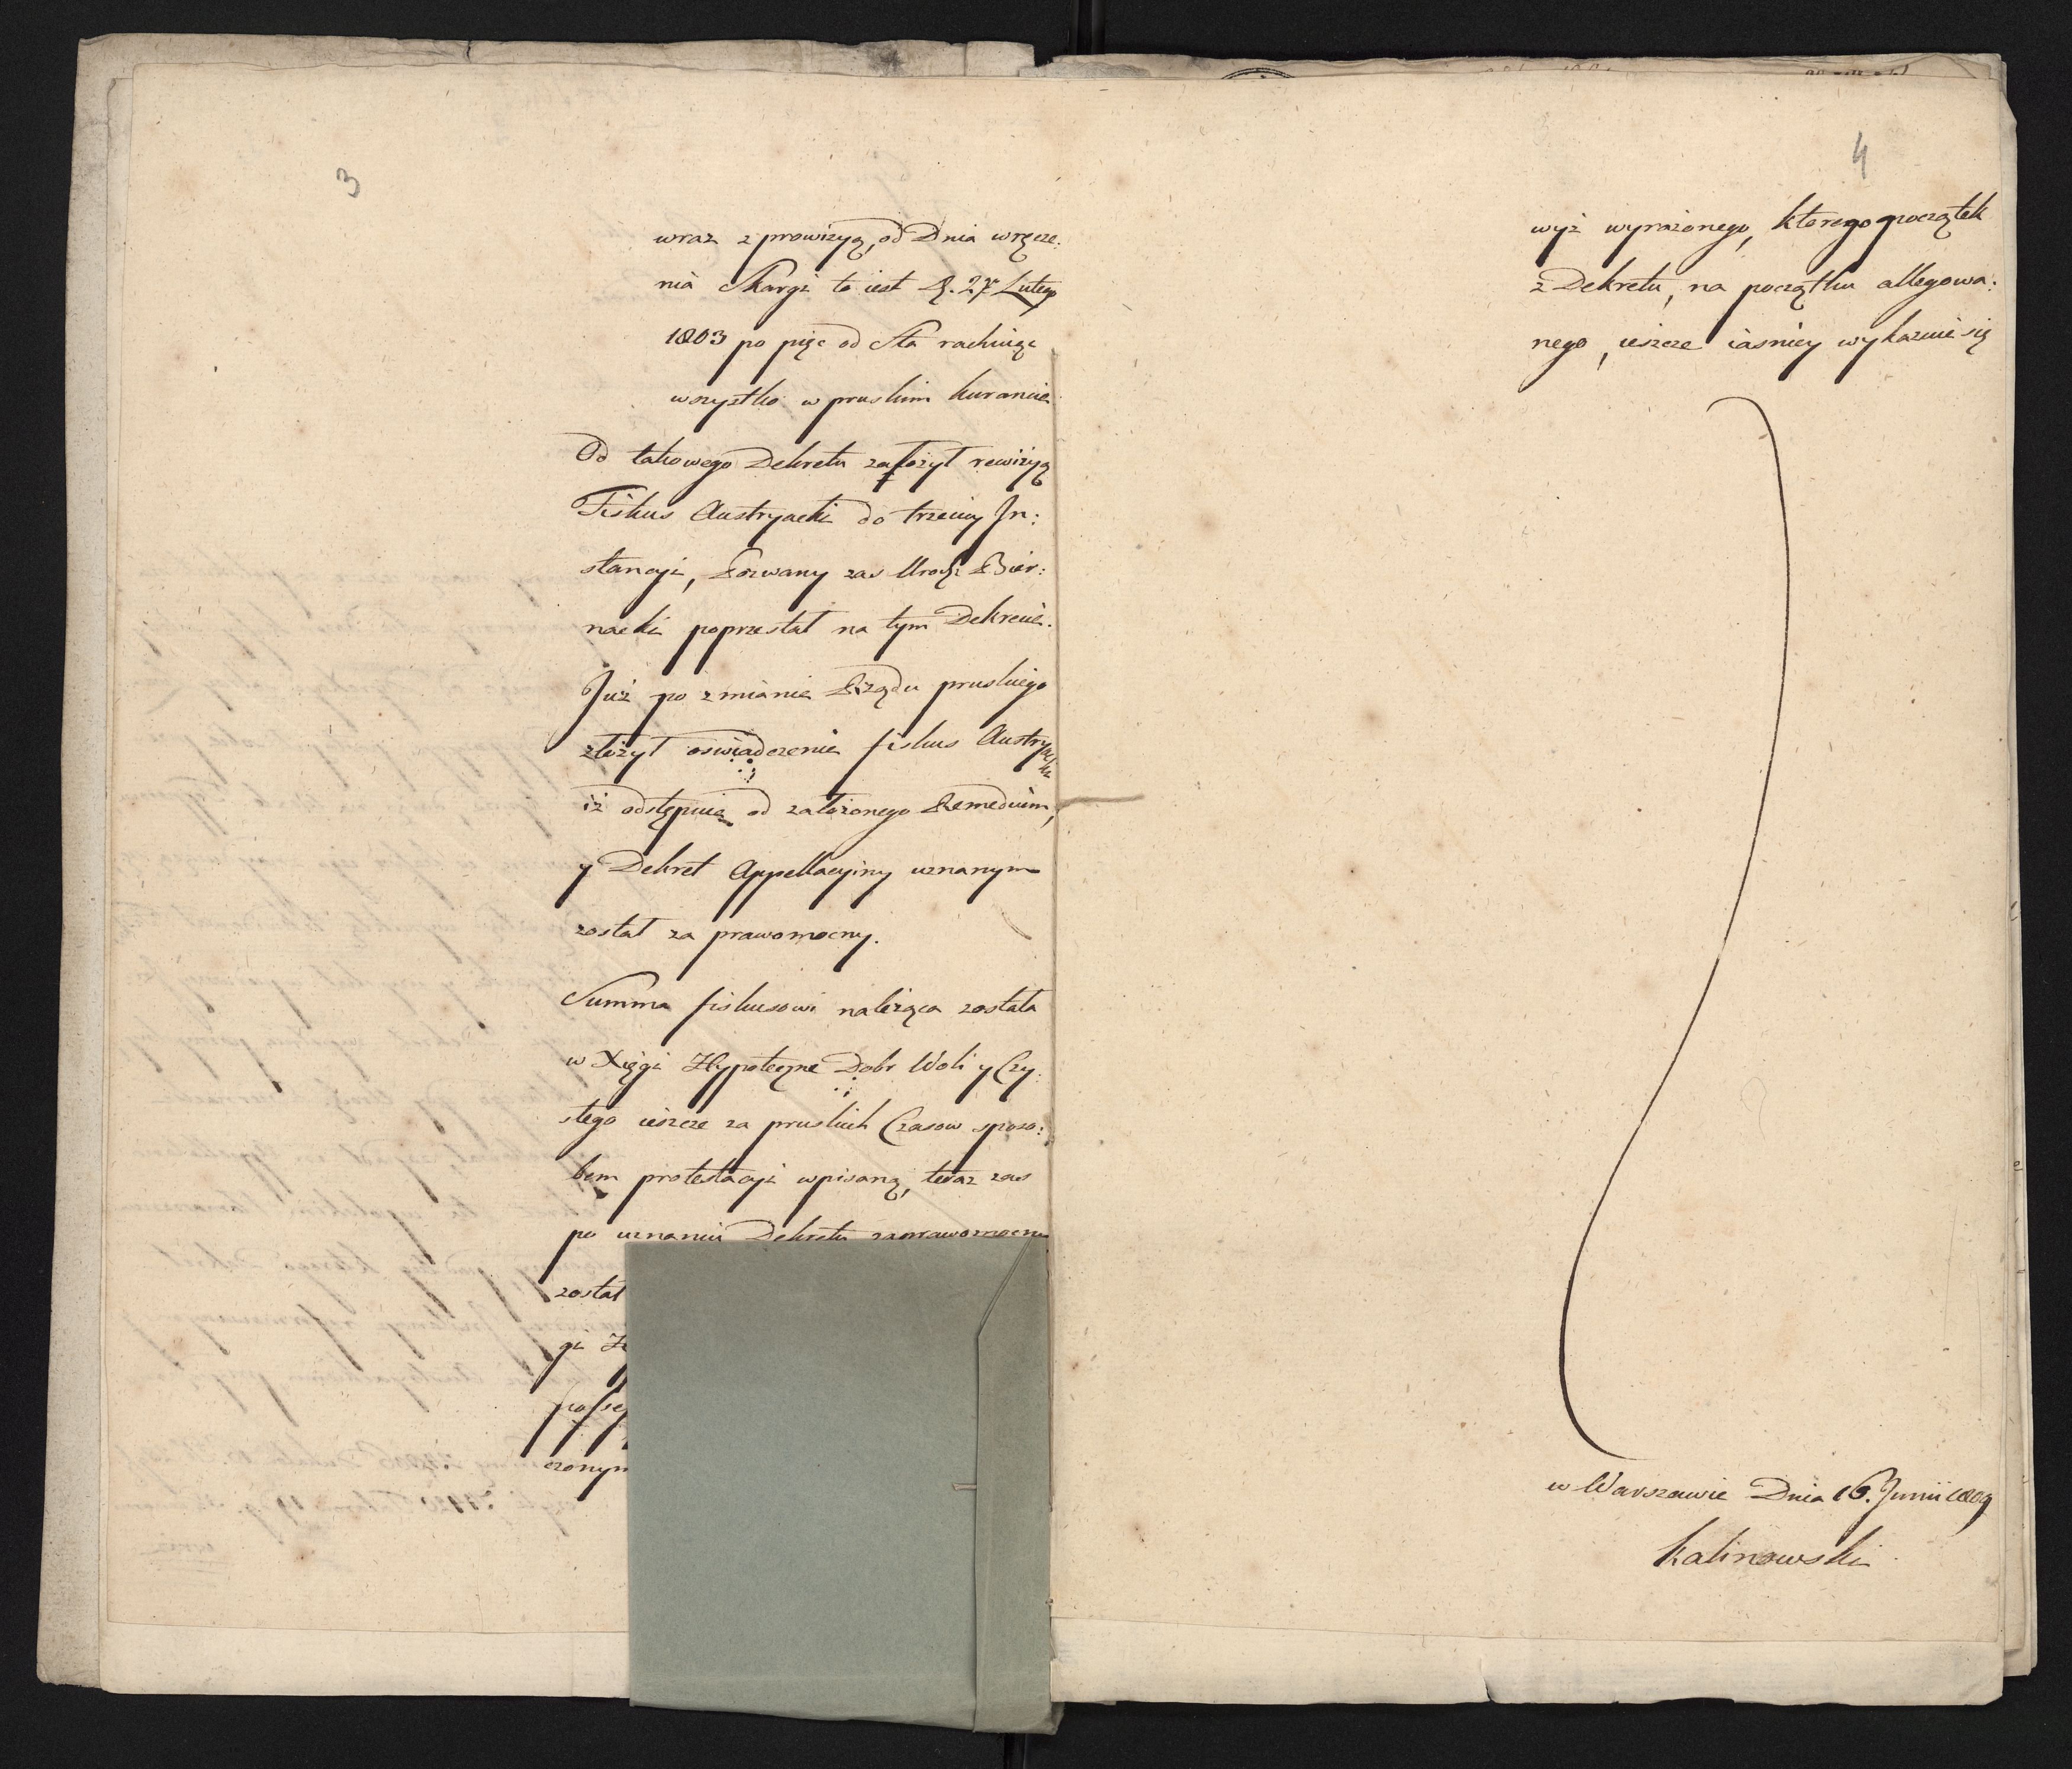 3
wraz z prowizyą, od Dnia wręcze:
nia Skargi to iest d. 27 Lutego
1803 po pięc od Sta rachuiąc
wszystko w pruskim kurancie
Od takowego Dekretu założył rewizyą
Fiskus Austryacki do trzeciey In:
stancyi, Pozwany zas Urodz. Bier:
nacki poprzestał na tym Dekrecie.
Już po zmianie Rządu pruskiego
złożył oswiadczenie fiskus Austryacki
iż odstępuie od założonego Remedium,
y Dekret Appellacyiny uznanym
został za prawomocny.
Summa fiskusowi należąca została
w Xięgi Hypoteczne Dobr Woli y Czy:
stego ieszcze za pruskich Czasow sposo:
bem protestacyi wpisaną, teraz zas
po uznaniu Dekretu za prawomocny
został
gi
czonym
4
wyż wyrażonego, ktorego początek
z Dekretu, na początku allegowa:
nego, ieszcze iasniey wykazuie się
w Warszawie Dnia 16. Junii 1809
Kalinowski